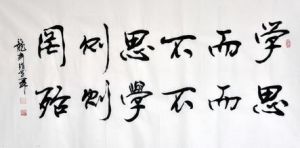 学而不思则罔
思而不學则殆